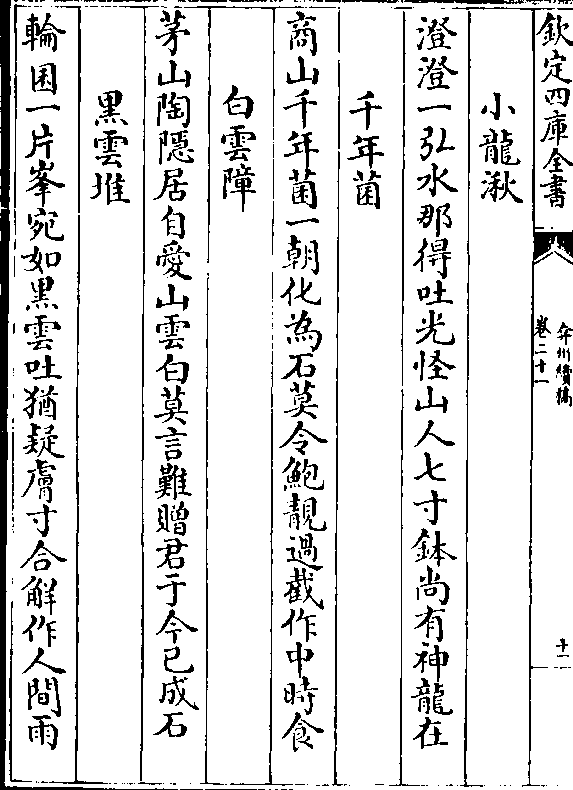 欽定四庫全書
弇州續稿
卷二十一
十一
小龍湫
澄澄一弘水那得吐光怪山人七寸鉢尚有神龍在
千年菌
商山千年菌一朝化為石莫令鮑靚過截作中時食
白雲障
茅山陶隱居自愛山雲白莫言難贈君于今已成石
黒雲堆
輪囷一片峯宛如黒雲吐猶疑膚寸合解作人間雨